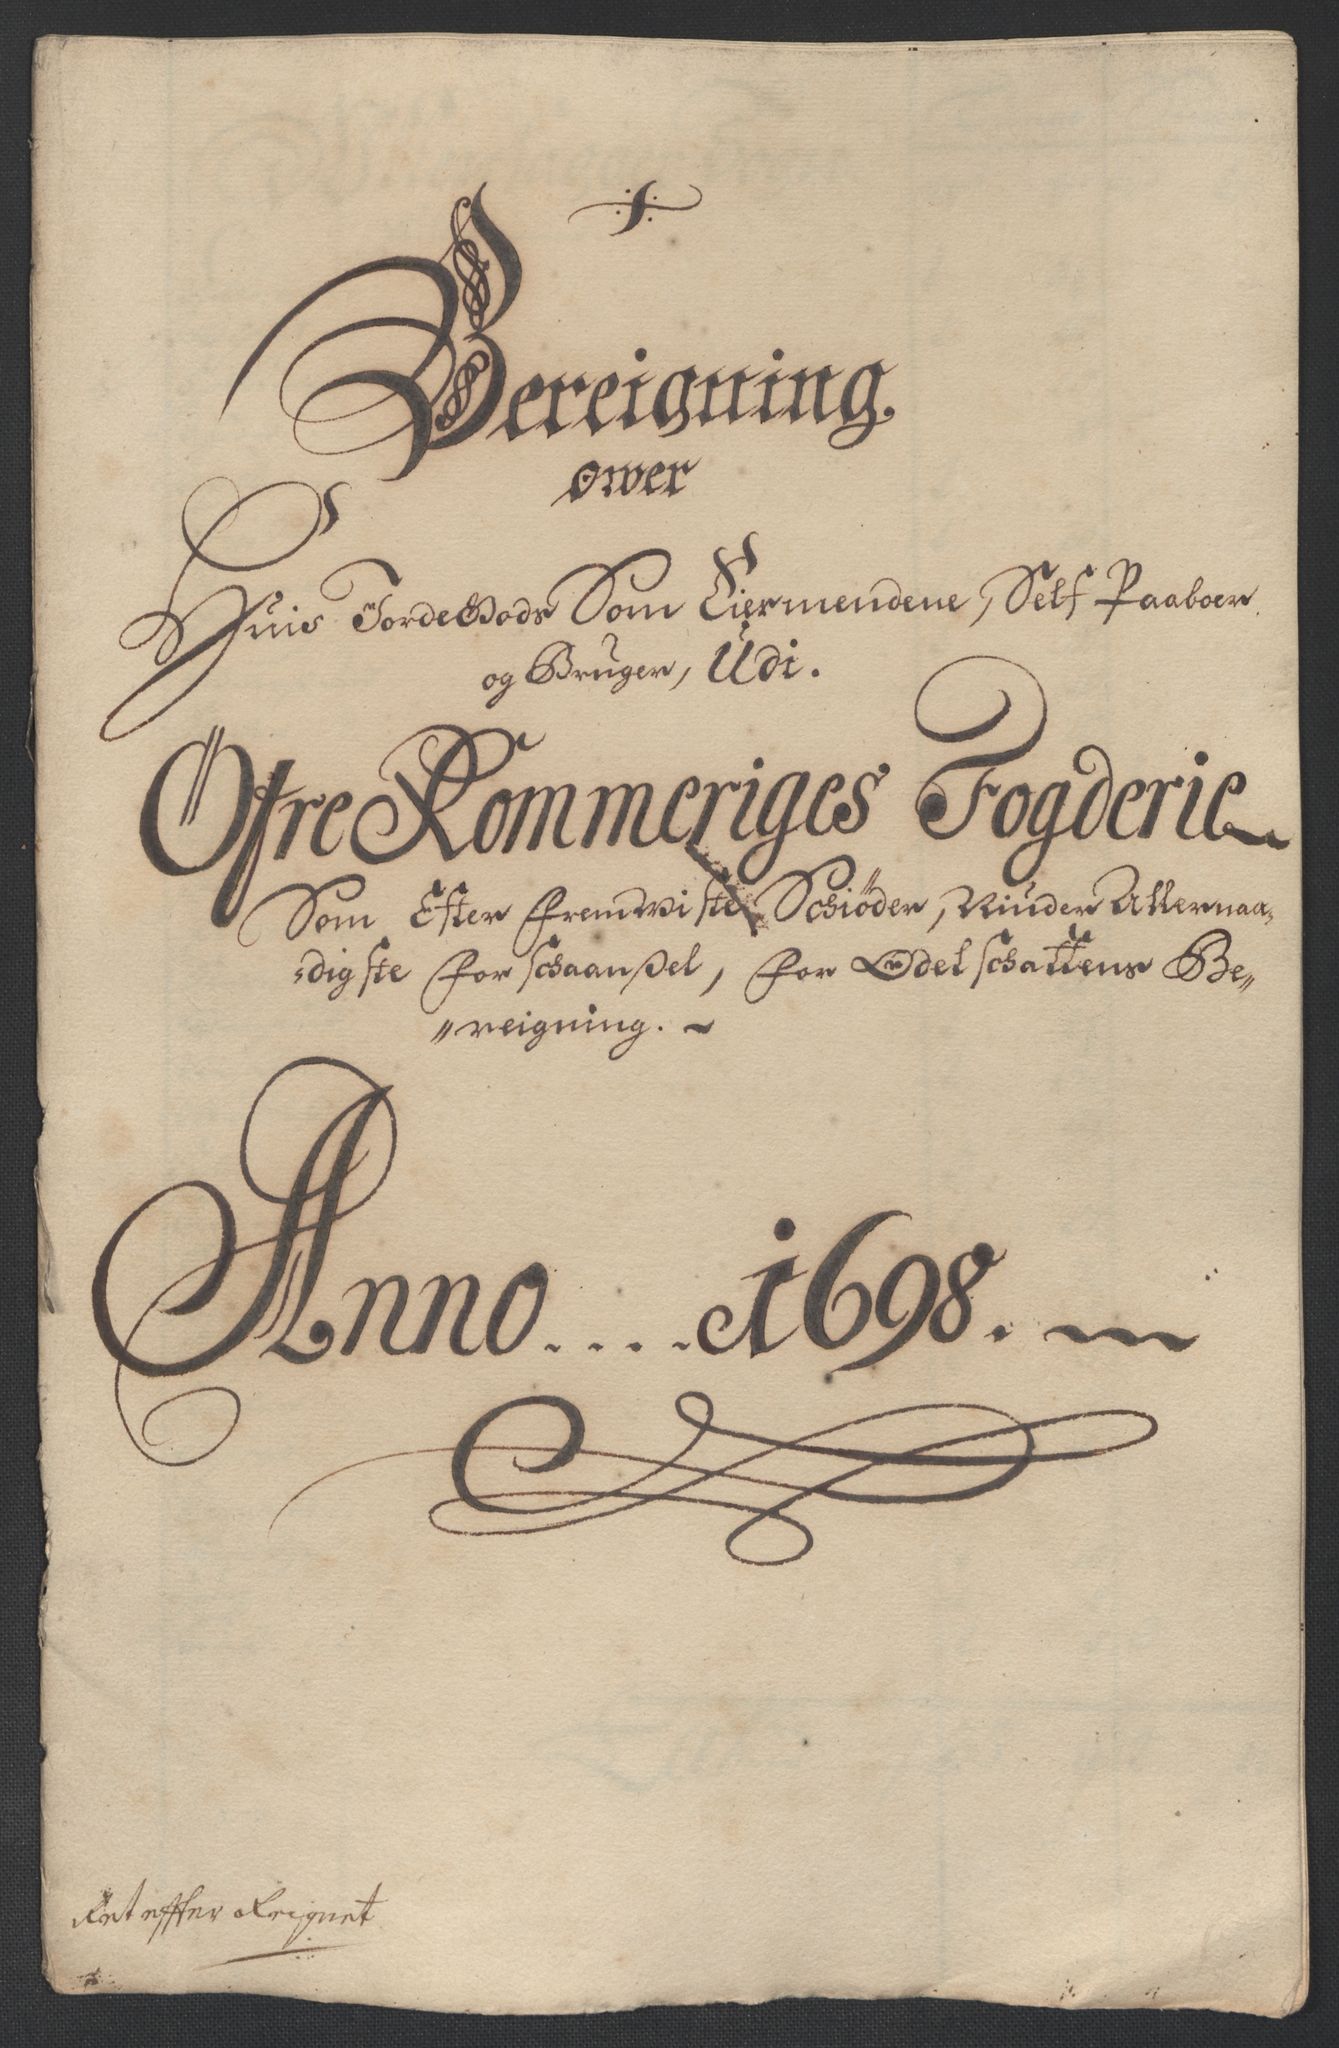 Bereigning.
ower
Huis JordeGods Som Eiermendene, Self Paaboer
og Bruger, Udi.
Öfre Rommeriges Fogderie
Som Efter fremviste Schiøder, Niuder Allernaa-
digste forschaanßel, for Odelschattens Be-
reigning.
Anno....1698.
Ret effter Reignet